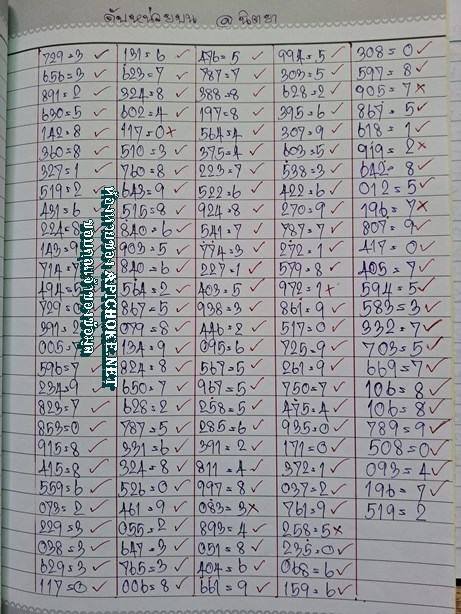 ดับหน่วยบน @ นิตยา
729=3 ✓ 131=6 ✓ 476=5 ✓ 994=5 ✓ 308=0 ✓
656=3 ✓ 623=7 ✓ 787=7 ✓ 303=5 ✓ 597=8 ✓
891=2 ✓ 324=8 ✓ 388=8 ✓ 628=2 ✓ 905=7 ×
630=5 ✓ 602=4 ✓ 197=8 ✓ 395=6 ✓ 867=5 ✓
142=8 ✓ 417=0 × 564=4 ✓ 307=9 ✓ 618=1 ✓
360=8 ✓ 510=3 ✓ 375=4 ✓ 603=5 ✓ 919=2 ×
327=1 ✓ 760=8 ✓ 223=7 ✓ 538=3 ✓ 642=8 ✓
519=2 ✓ 643=9 ✓ 522=6 ✓ 422=6 ✓ 012=5 ✓
431=6 ✓ 515=8 ✓ 924=8 ✓ 270=9 ✓ 196=7 ×
224=8 840=6 ✓ 541=7 ✓ 787=7 ✓ 807=9 ✓
903=5 ✓ 774=3 ✓ 272=1 ✓ 417=0 ✓
840=6 ✓ 227=1 ✓ 579=8 ✓ 405=7 ✓
494=5 564=2 ✓ 403=5 ✓ 972=1 × 594=5 ✓
867=5 ✓ 938=3 ✓ 861=9 ✓ 583=3 ✓
079=8 ✓ 446=2 ✓ 517=0 ✓ 332=7 ✓
134=9 ✓ 095=6 ✓ 725=9 ✓ 703=5 ✓
596=7 824=8 ✓ 567=5 ✓ 261=9 ✓ 669=7 ✓
234=9 650=7 ✓ 967=5 ✓ 750=7 ✓ 106=8 ✓
823=7 ✓ 628=2 ✓ 258=5 ✓ 475=4 ✓ 106=8 ✓
853=0 ✓ 787=5 ✓ 285=6 ✓ 935=0 ✓ 789=9 ✓
915=8 ✓ 331=6 ✓ 391=2 ✓ 171=0 ✓ 508=0 ✓
415=8 ✓ 324=8 ✓ 811=4 ✓ 372=1 ✓ 093=4 ✓
559=6 ✓ 526=0 ✓ 997=8 ✓ 037=2 ✓ 196=7 ✓
073=2 ✓ 461=9 ✓ 083=3 × 761=9 ✓ 519=2
229=3 ✓ 055=2 ✓ 893=4 ✓ 258=5 ×
038=3 ✓ 647=3 ✓ 051=8 ✓ 235=0 ✓
629=3 ✓ 765=3 ✓ 404=6 ✓ 068=6 ✓
117=0 ✓ 006=8 ✓ 661=9 ✓ 159=6 ✓
APICHOKE.NET